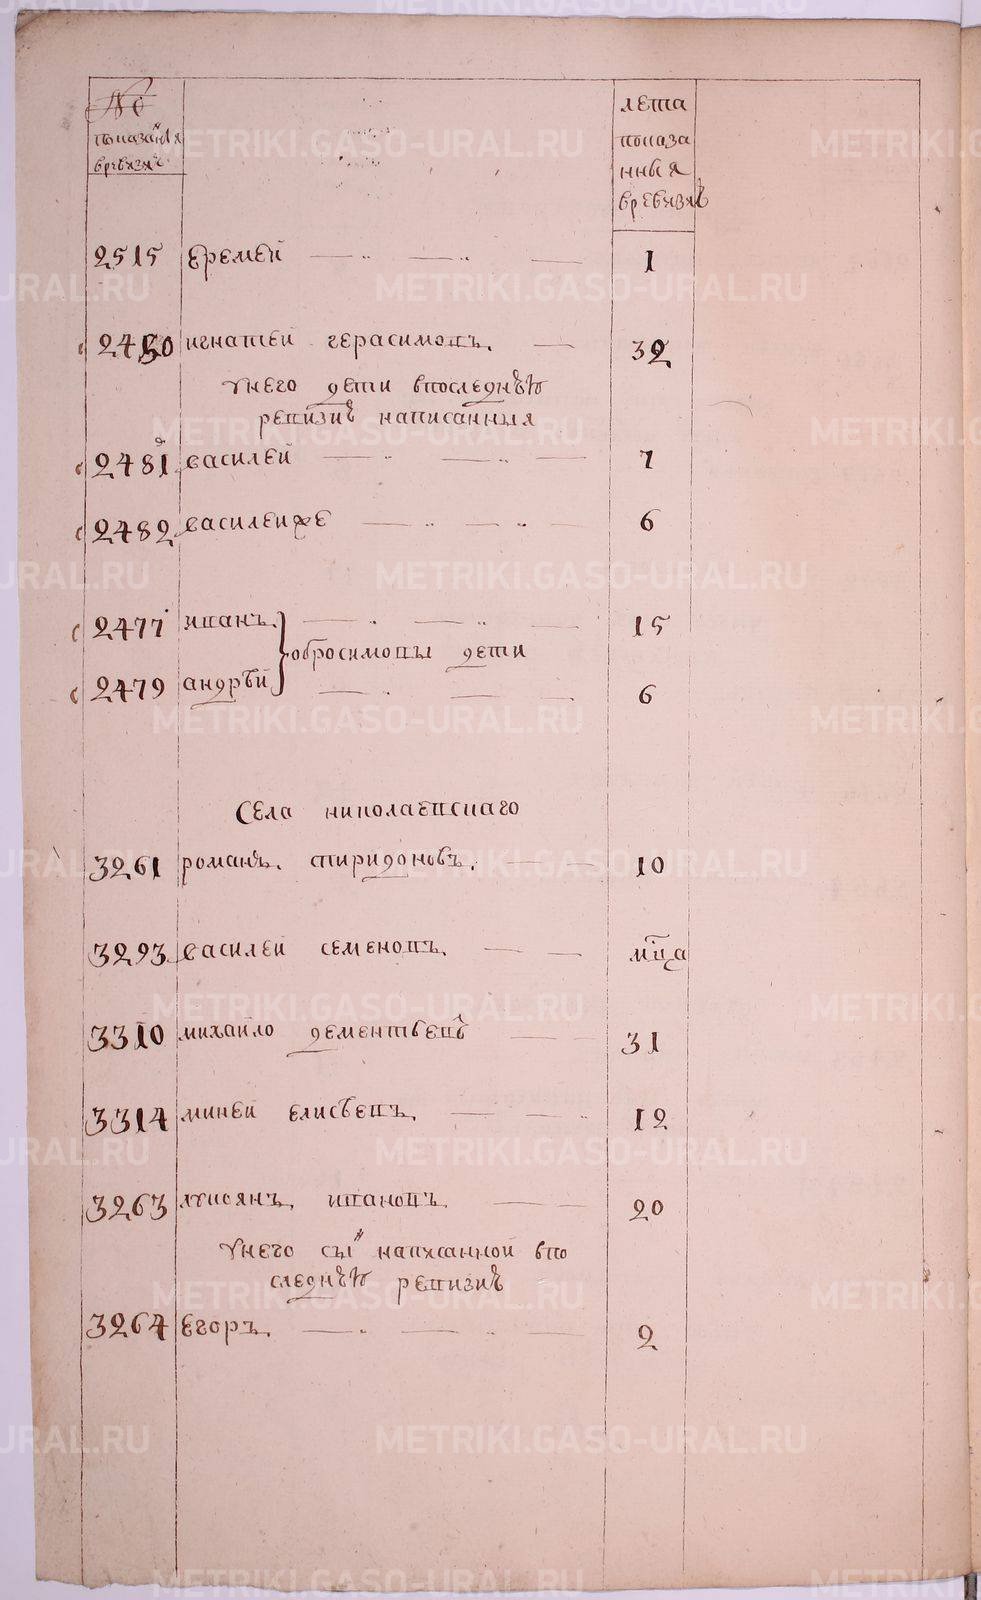 №
показания
вревизиі
лета
показа
нныя
вревизиѣ
2515 еремей 1
2480 игнатей герасимовъ. 32
унего дети впоследнѣю
ревизиѣ написанныя
2481 василей 7
2482 василейже 6
2477 иванъ. 15
обросимовы дети
2479 андрѣй 6
Села николаевскаго
3261 романъ. спиридоновъ. 10
3293 василей семеновъ. мца
3310 михайло дементьевъ 31
3314 миней елисѣевъ. 12
3263 лукоянъ. ивановъ. 20
унего сынъ написанной впо
следнѣю ревизиѣ
3264 егоръ. 2
METRIKI.GASO-URAL.RU